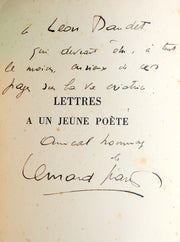 à Léon Daudet
qui devrait être, à tout
le moins, curieux de ces
pages sur la vie créatrice
LETTRES
A UN JEUNE POÈTE
Amical hommage